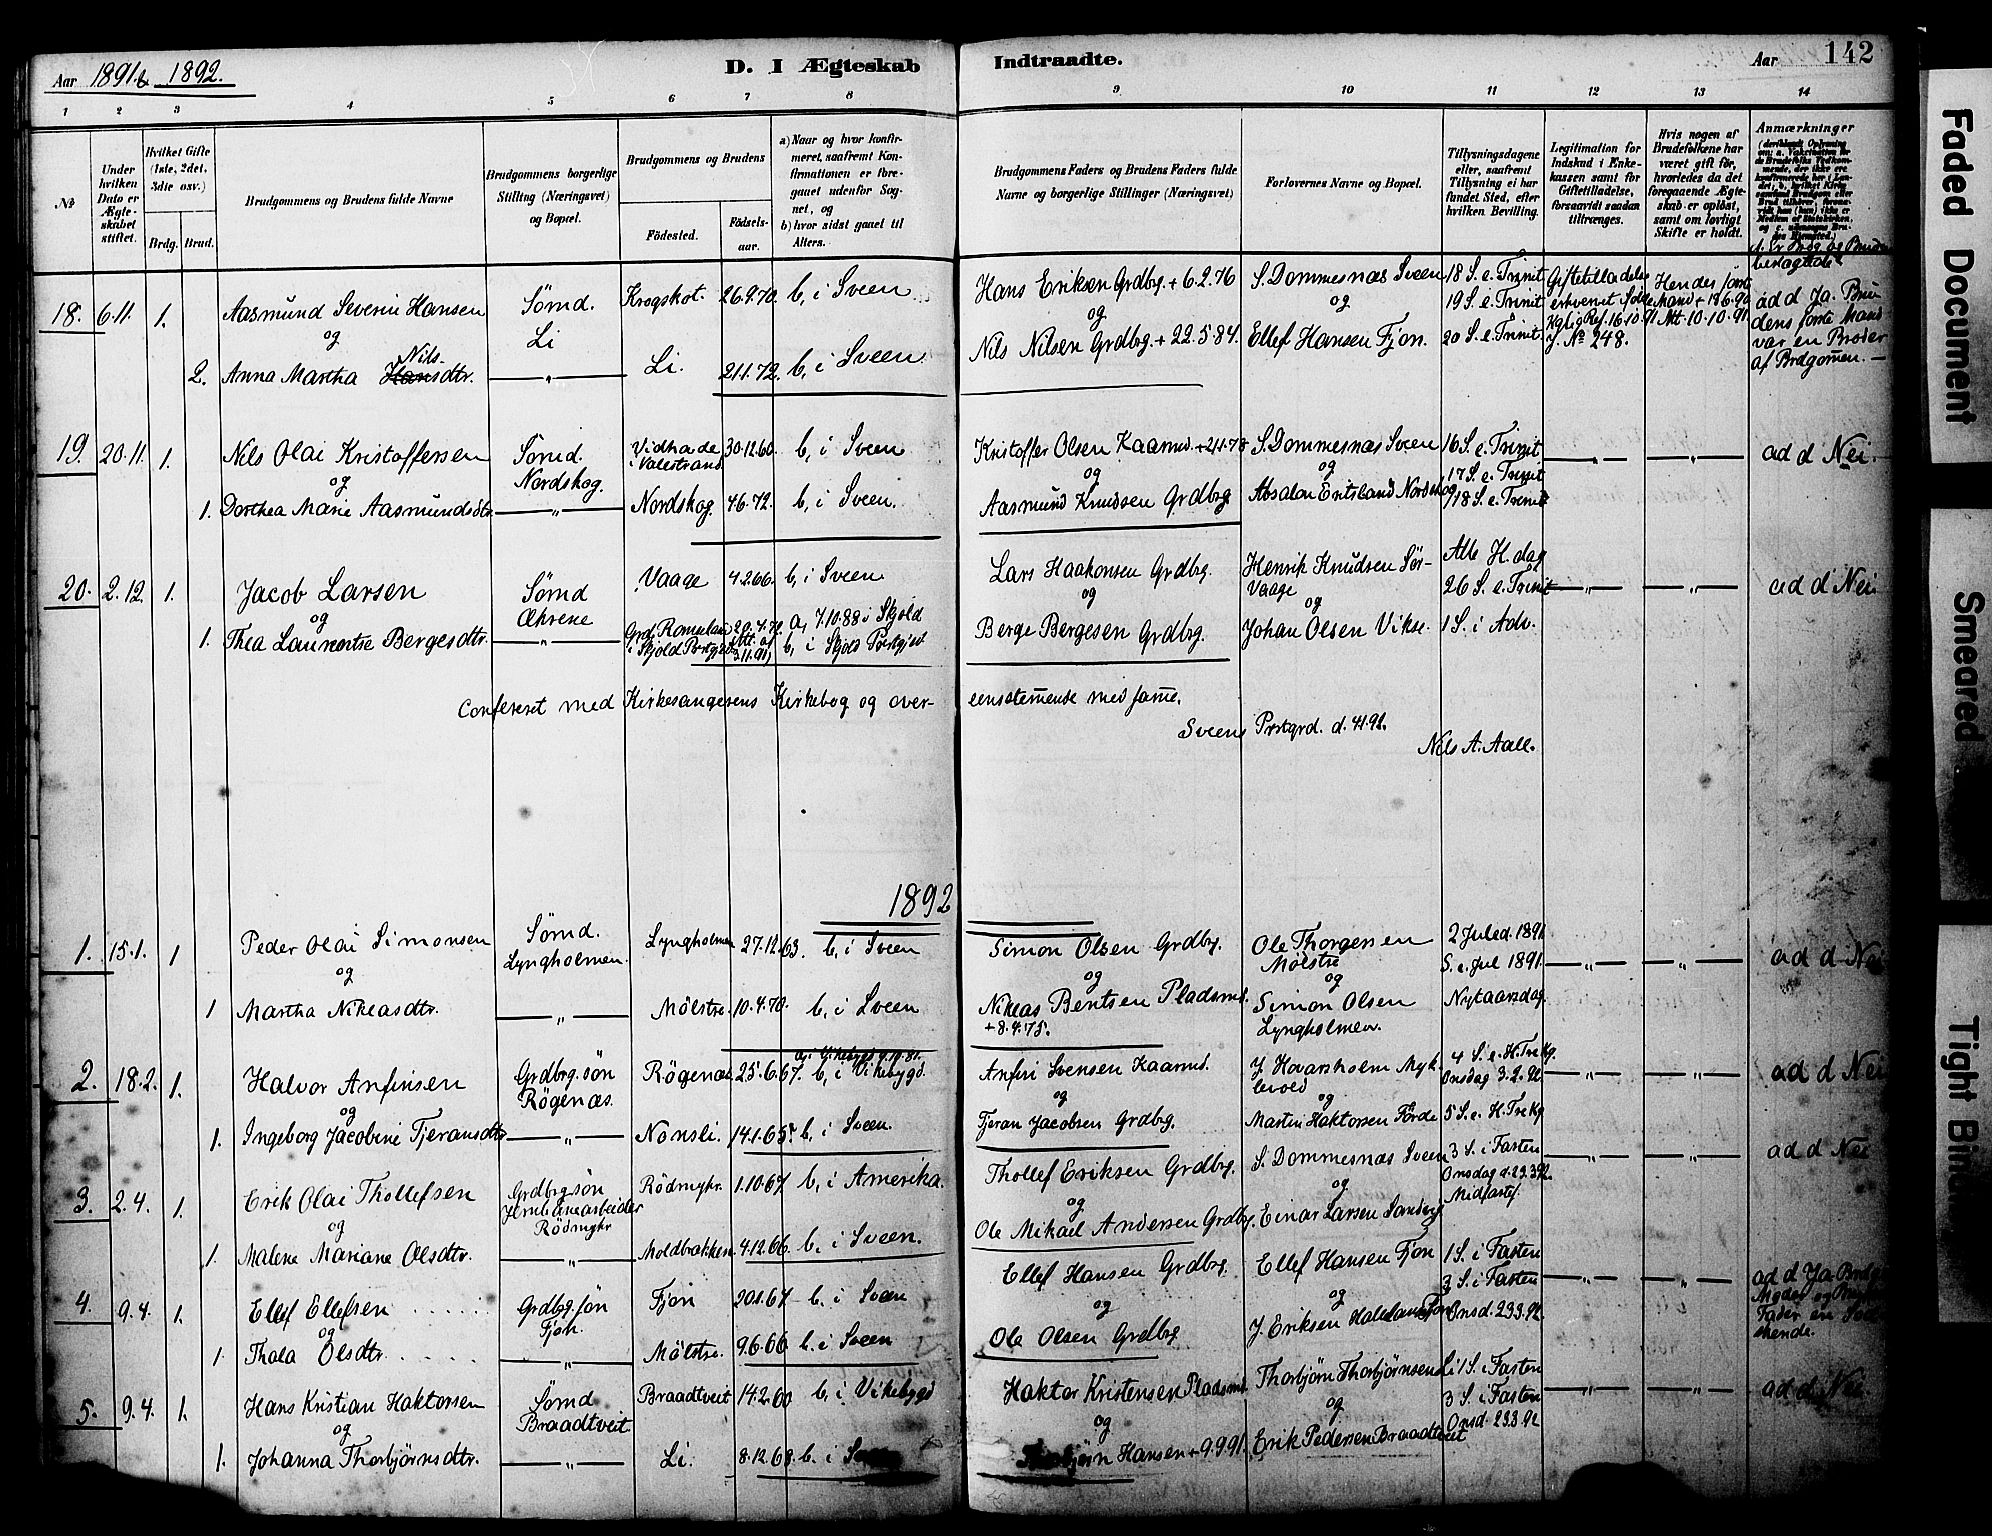 Aar 1891 & 1892.
D. I Ægteskab Indtraadte.
Aar 142
1 2 3 4 5 6 7 8 9 10 11 12 13 14
No
Under hvilken Dato er Ægteskabet stiftet.
Hvilket Gifte (1ste, 2det, 3die osv.)
Brdg. Brud.
Brudgommens og Brudens fulde Navne
Brudgommens borgerlige Stilling (Næringsvei) og Bopæl.
Brudgommens og Brudens
Fødested. Fødselsaar.
a) Naar og hvor konfirmeret, saafremt Konfirmationen er foregaaet udenfor Sognet, og
b) hvor sidst gaaet til Alters.
Brudgommens Faders og Brudens Faders fulde Navne og borgerlige Stillinger (Næringsvei)
Forlovernes Navne og Bopæl.
Tillysningsdagene eller, saafremt Tillysning ei har fundet Sted, efter hvilken Bevilling.
Legitimation for Indskud i Enkekassen samt for Giftetilladelse, forsaavidt saadan tiltrænges.
Hvis nogen af Brudefolkene har været gift før, hvorledes da det foregaaende Ægteskab er opløst, samt om lovligt Skifte er holdt.
Anmærkninger
18. 6.11. 1. Aasmund Severin Hansen Sømd. Li Krogskot. 26.9.70. b, i Sveen Hans Eriksen Grdbrg. + 6.2.76 S. Dommesnæs Sveen 18 S. e. Trinit
og og og 19 S. e. Trinit 20 S. e. Trinit
2. Anna Martha Nilsdtr. — " — Li. 21.1.72. b, i Sveen Nils Nilsen Grdbrg. + 22.5.84. Ellef Hansen Fjon.
Giftetilladelse erhvervet ifølge Kglig Res. 16.10.91. J. No 248.
Hendes første Mand + 18.6.90 Att. 10.10.91.
ad d Ja. Brudens første Mand var en Broder af Brdgomen. —
19. 20.11. 1. Nils Olai Kristoffersen Sømd. Nordskog. Vidhade i Valestrand 30.12.60. b, i Sveen Kristoffer Olsen Kaarmd. + 21.1.78 S. Dommesnæs Sveen 16 S. e. Trinit — " — — " — ad d Nei.
og og og 17 S. e. Trinit
1. Dorthea Marie Aasmundsdtr. — " — Nordskog. 4.6.72. b, i Sveen. Aasmund Knudsen Grdbrg. Absalon Eritsland Nordskog 18 S. e. Trinit
20. 2.12. 1. Jacob Larsen Sømd Økrene Vaage 4.2.66. b, i Sveen Lars Haakonsen Grdbrg. Henrik Knudsen Sør-Vaage Alle H. dag 26 S. e. Trinit — " — — " — ad d Nei
og og og
1. Thea Laurentse Bergesdtr. — " — Grd. Romsland i Skjold Prstgjeld 20.4.72 (Att. af 3.11.91) a, 7.10.88 i Skjold b, i Skjold Prstgjeld Berge Bergesen Grdbrg. Johan Olsen Vikse. 1 S. i Adv.
Confereret med Kirkesangerens Kirkebog og overeenstemmende med samme.
Sveens Prstgrd. d. 4.1.92.
Nils A. Aall.
1892
1. 15.1. 1 Peder Olai Simonsen Sømd. Lyngholmen. Lyngholmen 27.12.63. b, i Sveen Simon Olsen Grdbrg. Ole Thorgersen Mølstre 2 Juled. 1891 S. e. Jul 1891. — " — — " — ad d Nei
og og og
1 Martha Nikeasdtr. — " — Mølstre. 10.4.70. b, i Sveen Nikeas Bentsen Pladsmd. + 8.4.75. Simon Olsen Lyngholmen. Nytaarsdag.
2. 18.2. 1. Halvor Anfinsen Grdbrg. søn Røgenæs. Røgenæs 25.6.67. a, i Vikebygd 9.10.81. b, i Vikebygd. Anfin Svensen Kaarmd. J. Hovarsholm Myklevold 4 S. e. H. Tre Kg. Onsdag 3.2.92. — " — — " — ad d Nei
og og og
1. Ingeborg Jacobine Tjeransdtr. — " — Nonsli. 14.1.65. b, i Sveen. Tjeran Jacobsen Grdbrg. Martin Haktorsen Førde 5 S. e. H. Tre Kg
3. 2.4. 1. Erik Olai Thollefsen Grdbrg. søn Jernbanearbeider Rødmyhr Rødmyhr. 1.10.67 b, i Amerika. Thollef Eriksen Grdbrg. S. Dommesnæs Sveen 3 S. i Fasten Onsdag d. 23.3.92. Midfaste — " — — " — ad d Nei
og og og
1. Malene Mariane Olsdtr. — " — Moldbakken. 4.12.66. b, i Sveen. Ole Mikael Andersen Grdbrg. Einar Larsen
4. 9.4. 1. Ellef Ellefsen Grdbrg. søn Fjon. Fjon 20.1.67 b, i Sveen Ellef Hansen Grdbrg. Ellef Hansen Fjon 1 S. i Fasten 3 S. i Fasten Onsd. 23.3.92. — " — — " — ad d Ja Brdg. Moder og Brudens Fader en Søskende.
og og og
1. Thala Olsdtr. — " — Mølstre. 9.6.66. b, i Sveen Ole Olsen Grdbrg J. Eriksen
5. 9.4. 1. Hans Kristian Haktorsen Sømd Braadtveit. Braadtveit 14.2.60 b, i Vikebygd Haktor Kristensen Pladsmd. Thorbjörn Thorbjörnsen Li. 1 S. i Fasten 3 S. i Fasten Onsd. 23.3.92 — " — — " — ad d Nei
og og og
1. Johanna Thorbjörnsdtr. — " — Li. 8.12.68. b. i Sveen Thorbjörn Hansen + 9.9.91. Erik Pedersen Braadtveit
Faded Document
Smeared
Tight Bin